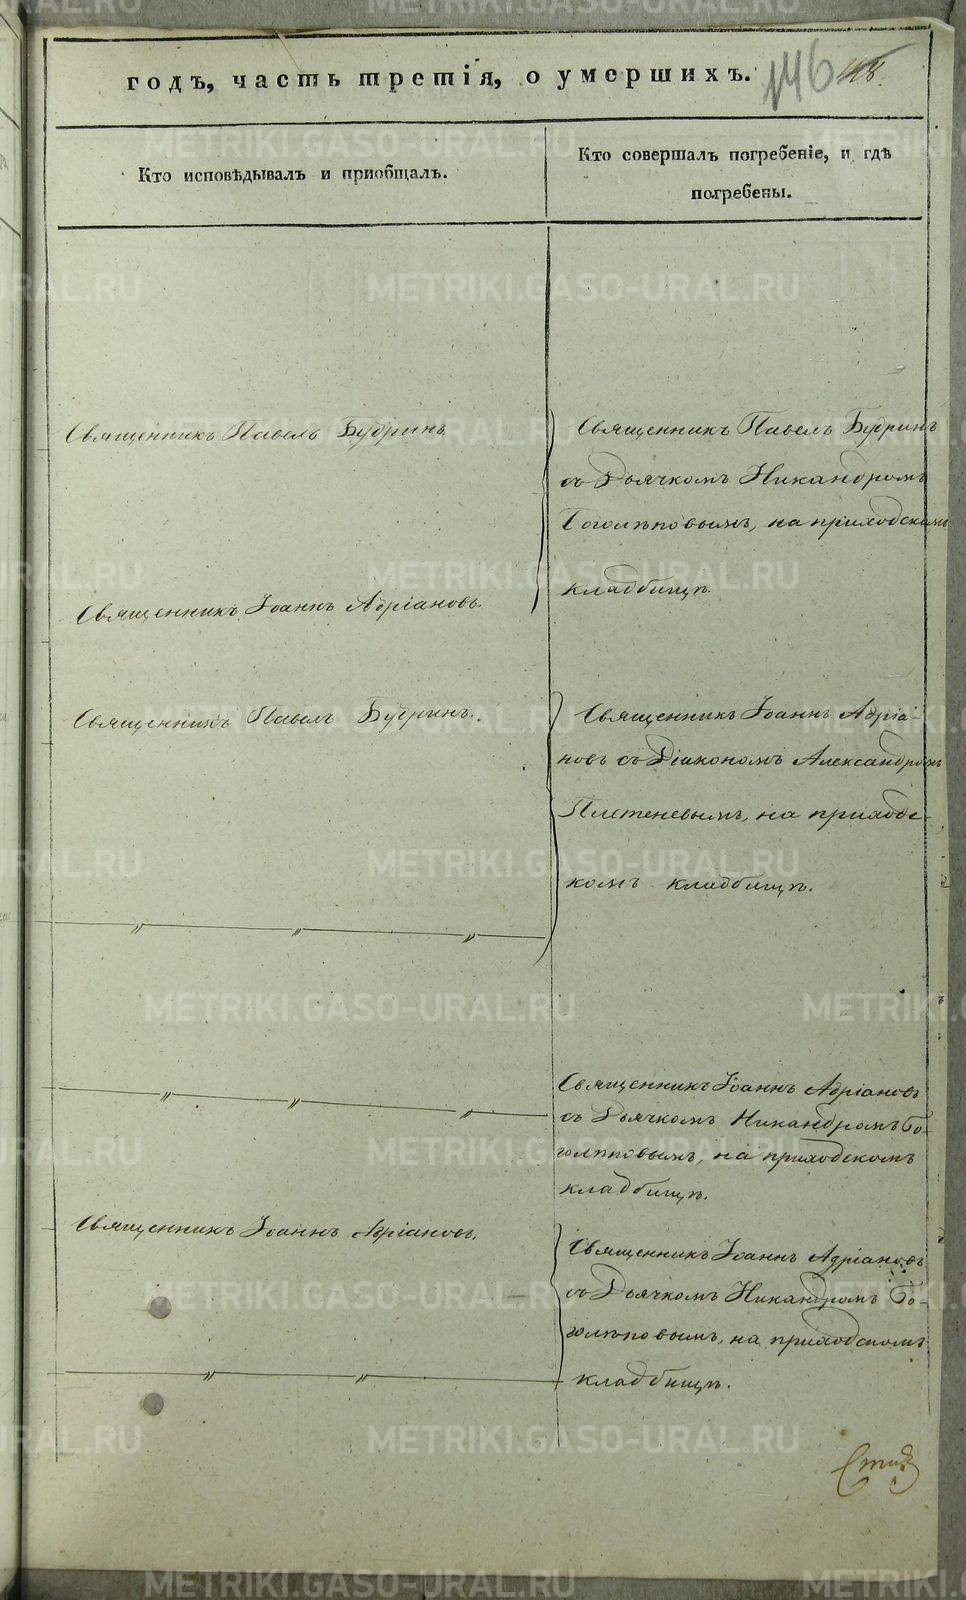 годъ, часть третія, о умершихъ. 146
Кто исповѣдывалъ и пріобщалъ.
Кто совершалъ погребеніе, и гдѣ
погребены.
Священникъ Павелъ Будринъ
Священникъ Павелъ Будринъ
съ Дьячкомъ Никандромъ
Боголѣповымъ, на приходскомъ
кладбищѣ.
Священникъ Іоаннъ Адріановъ.
Священникъ Павелъ Будринъ.
Священникъ Іоаннъ Адріа-
новъ съ Діакономъ Александромъ
Плетеневымъ, на приходс-
комъ кладбищѣ.
Священникъ Іоаннъ Адріановъ
съ Дьячкомъ Никандромъ Бо-
голѣповымъ, на приходскомъ
кладбищѣ.
Священникъ Іоаннъ Адріановъ.
Священникъ Іоаннъ Адріановъ
съ Дьячкомъ Никандромъ Бо-
голѣповымъ, на приходскомъ
кладбищѣ.
METRIKI.GASO-URAL.RU